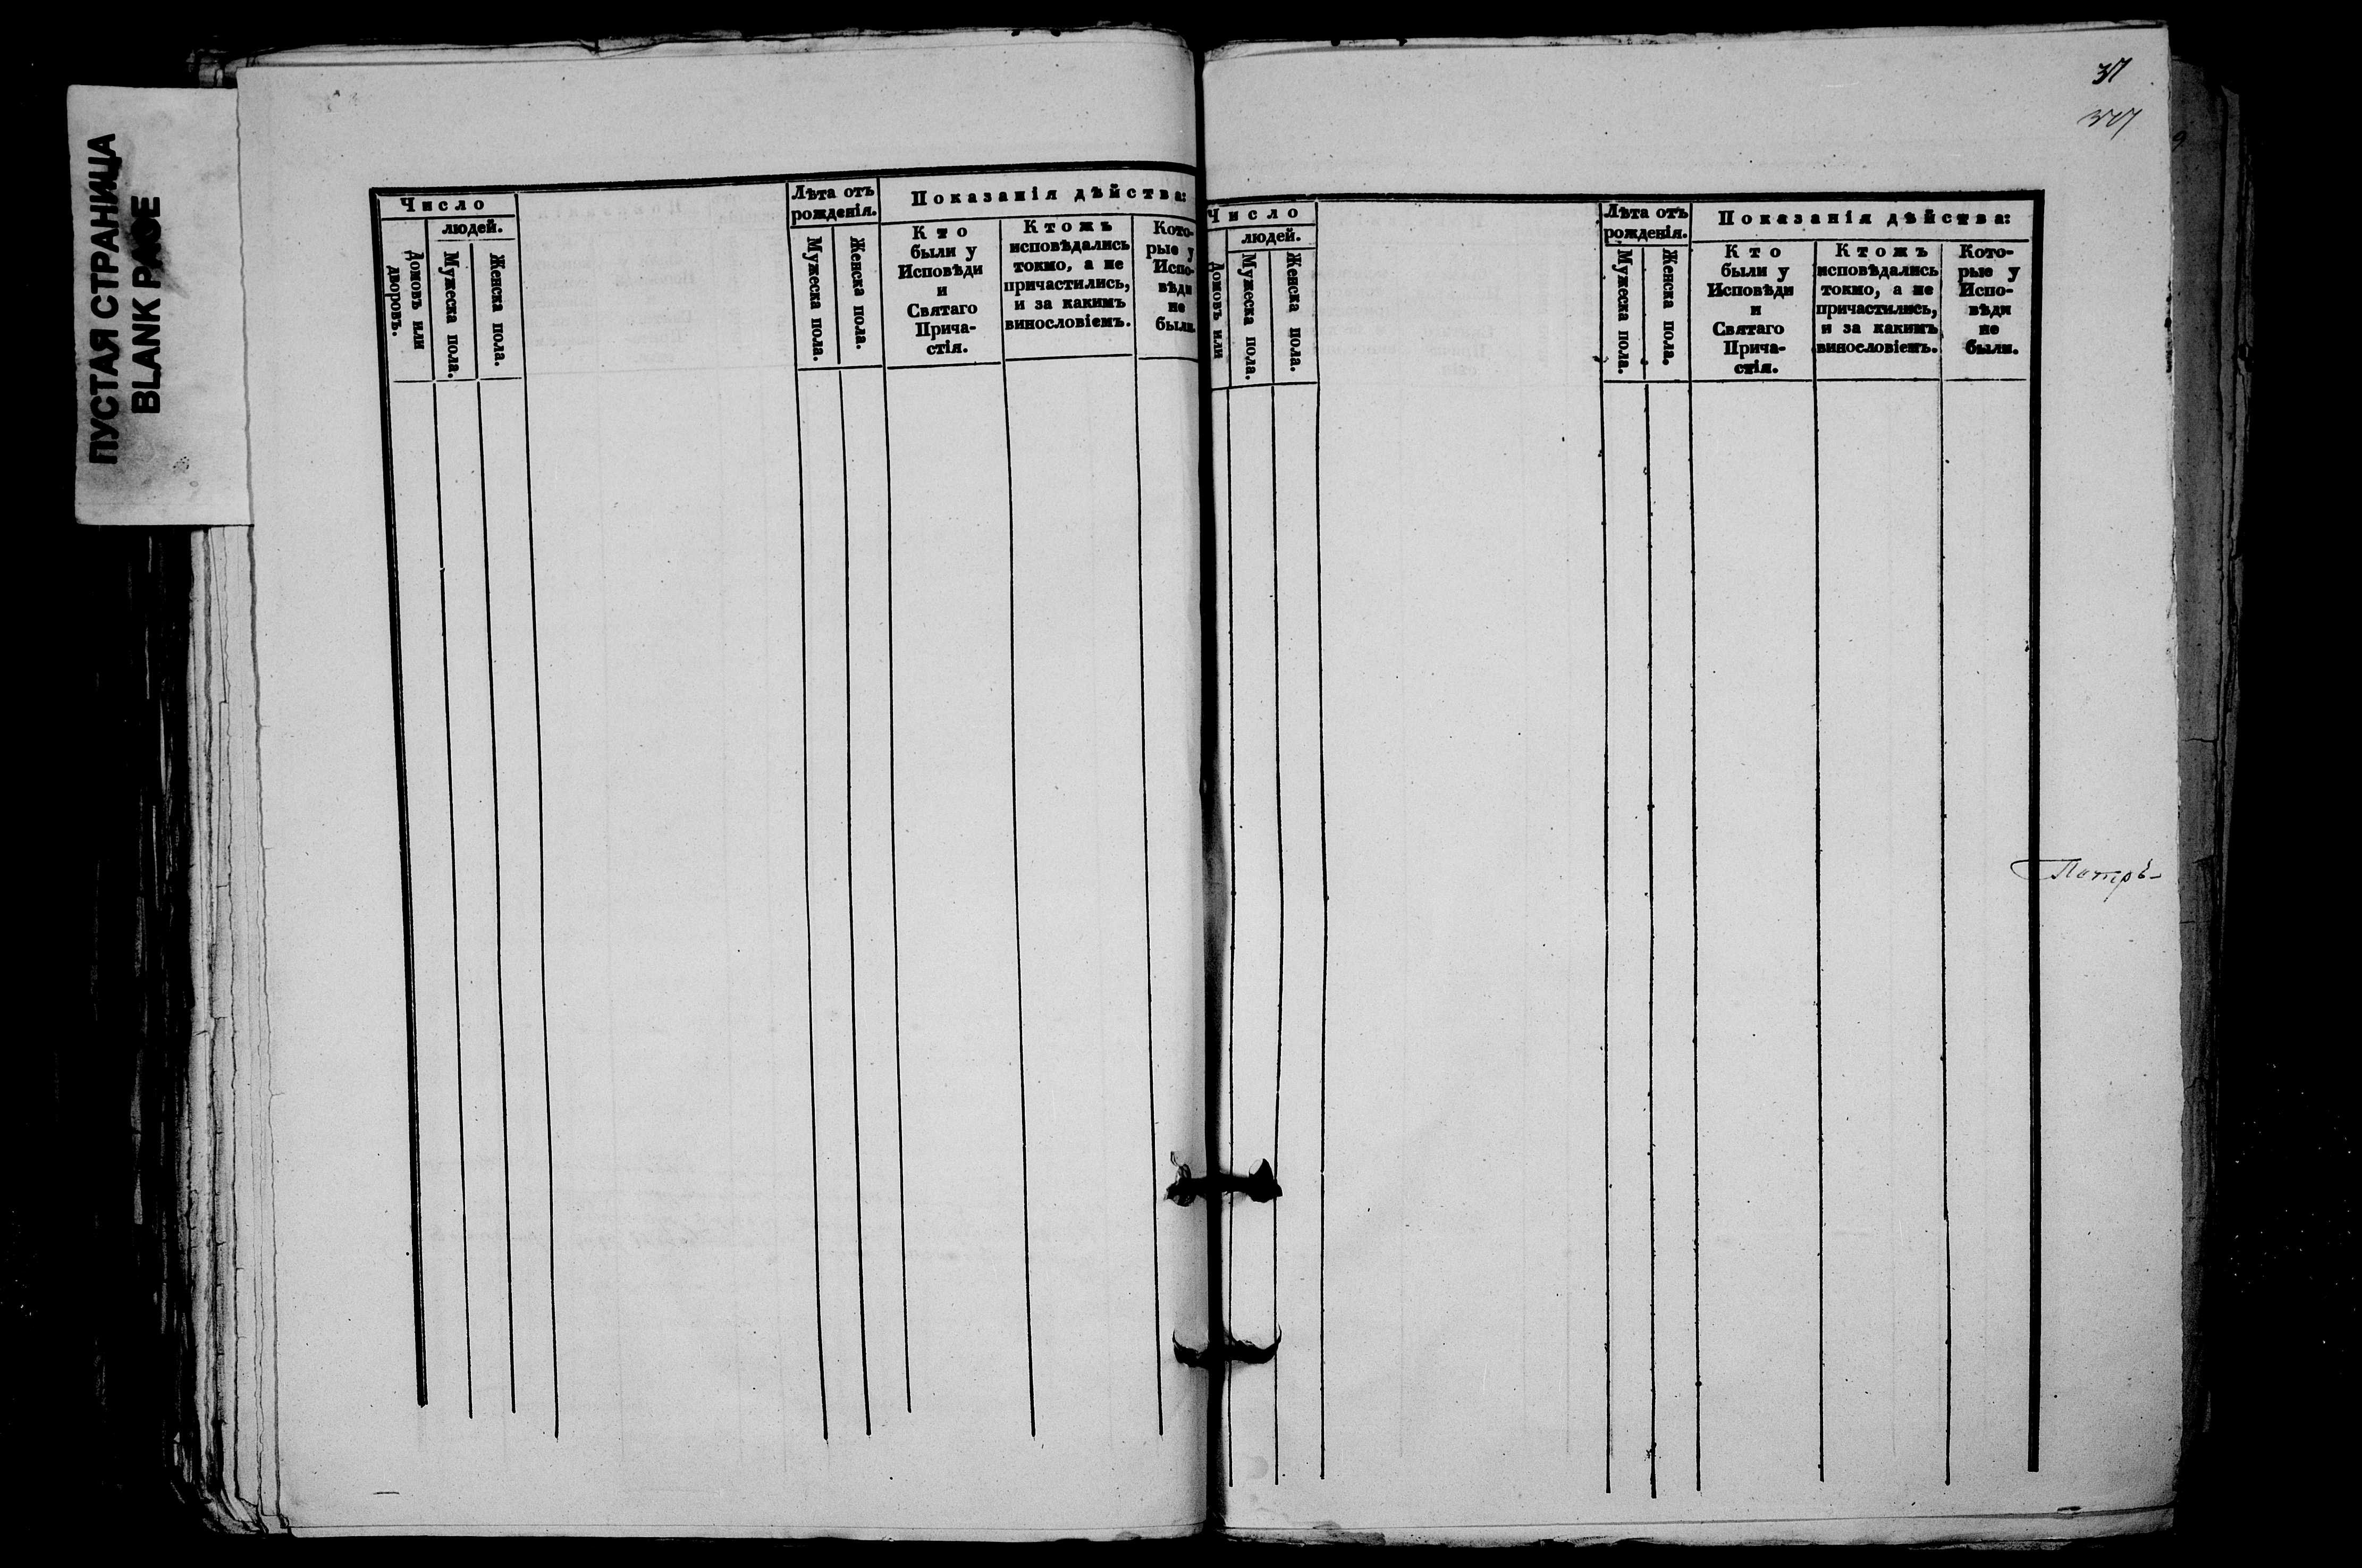 ПУСТАЯ СТРАНИЦА
BLANK PAGE
Число
людей.
Домовъ или
дворовъ.
Мужеска пола.
Женска пола.
Лѣта отъ
рожденія.
Мужеска пола.
Женска пола.
Показанія дѣйства:
Кто
были у
Исповѣди
и
Святаго
Прича-
стія.
Ктожъ
исповѣдались
токмо, а не
причастились,
и за какимъ
винословіемъ.
Кото-
рые у
Испо-
вѣди
не
были.
37
Число
людей.
Домовъ или
Мужеска пола.
Женска пола.
Лѣта отъ
рожденія.
Мужеска пола.
Женска пола.
Показанія дѣйства:
Кто
были у
Исповѣди
и
Святаго
Прича-
стія.
Ктожъ
исповѣдались
токмо, а не
причастились,
и за какимъ
винословіемъ.
Кото-
рые у
Испо-
вѣди
не
были.